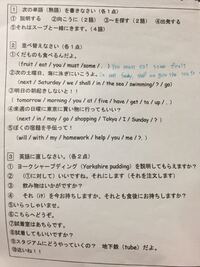 1 次の単語（熟語）を書きなさい（各1点）
①説明する ②向こうに（2語） ③～を探す（2語） ④出発する
⑤それはスープと一緒にきます。（4語）
2 並べ替えなさい（各1点）
①くだものも食べるんだよ。
(fruit / eat / you / must / some / . ) You must eat some fruit
②次の土曜日、海に泳ぎにいこうよ。
(next / Saturday / we / shall / in / the sea / swimming / ? / go)
③明日の朝起きなさいと！！
( tomorrow / morning / you / at / five / have / get / to / up / . )
④来週の日曜に東京に買い物に行ってもいい？
(next / in / may / go / shopping / Tokyo / I / Sunday / ? )
⑤ぼくの宿題を手伝って！
(will / with / my / homework / help / you / me / ? )
3 英語に直しなさい。（各2点）
① ヨークシャープディング（Yorkshire pudding）を説明してもらえますか？
② （①に対して）いいですね。それにします（それを注文します）
③ 飲み物はいかがですか？
④ それ（it）を今お持ちしますか、それとも食後にお持ちしますか？
⑤いらっしゃいませ。
⑥こちらへどうぞ。
⑦試着室はあちらです。
⑧試着してもいいですか？
⑨スタジアムにどうやっていくの？ 地下鉄（tube）だよ。
⑩近いね！！